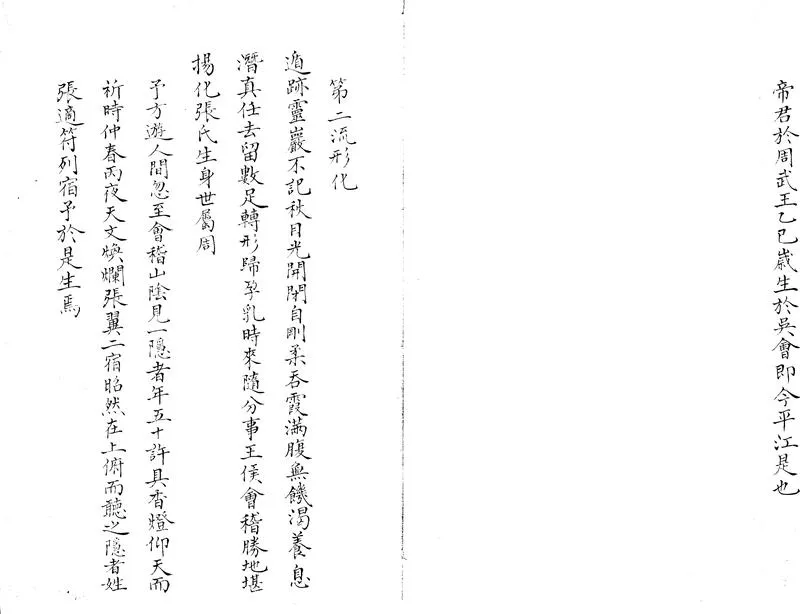 帝君於周武王乙巳歲生於吳會即今平江是也
第二流形化
遁跡靈巖不記秋目光開閉自剛柔吞霞滿腹無饑渴養息
潛真任去留數足轉形歸孕乳時來隨分事王侯會稽勝地堪
揚化張氏生身世屬周
予方遊人間忽至會稽山陰見一隱者年五十許具香燈仰天而
祈時仲春丙夜天文煥爛張翼二宿昭然在上俯而聽之隱者姓
張適符列宿予於是生焉